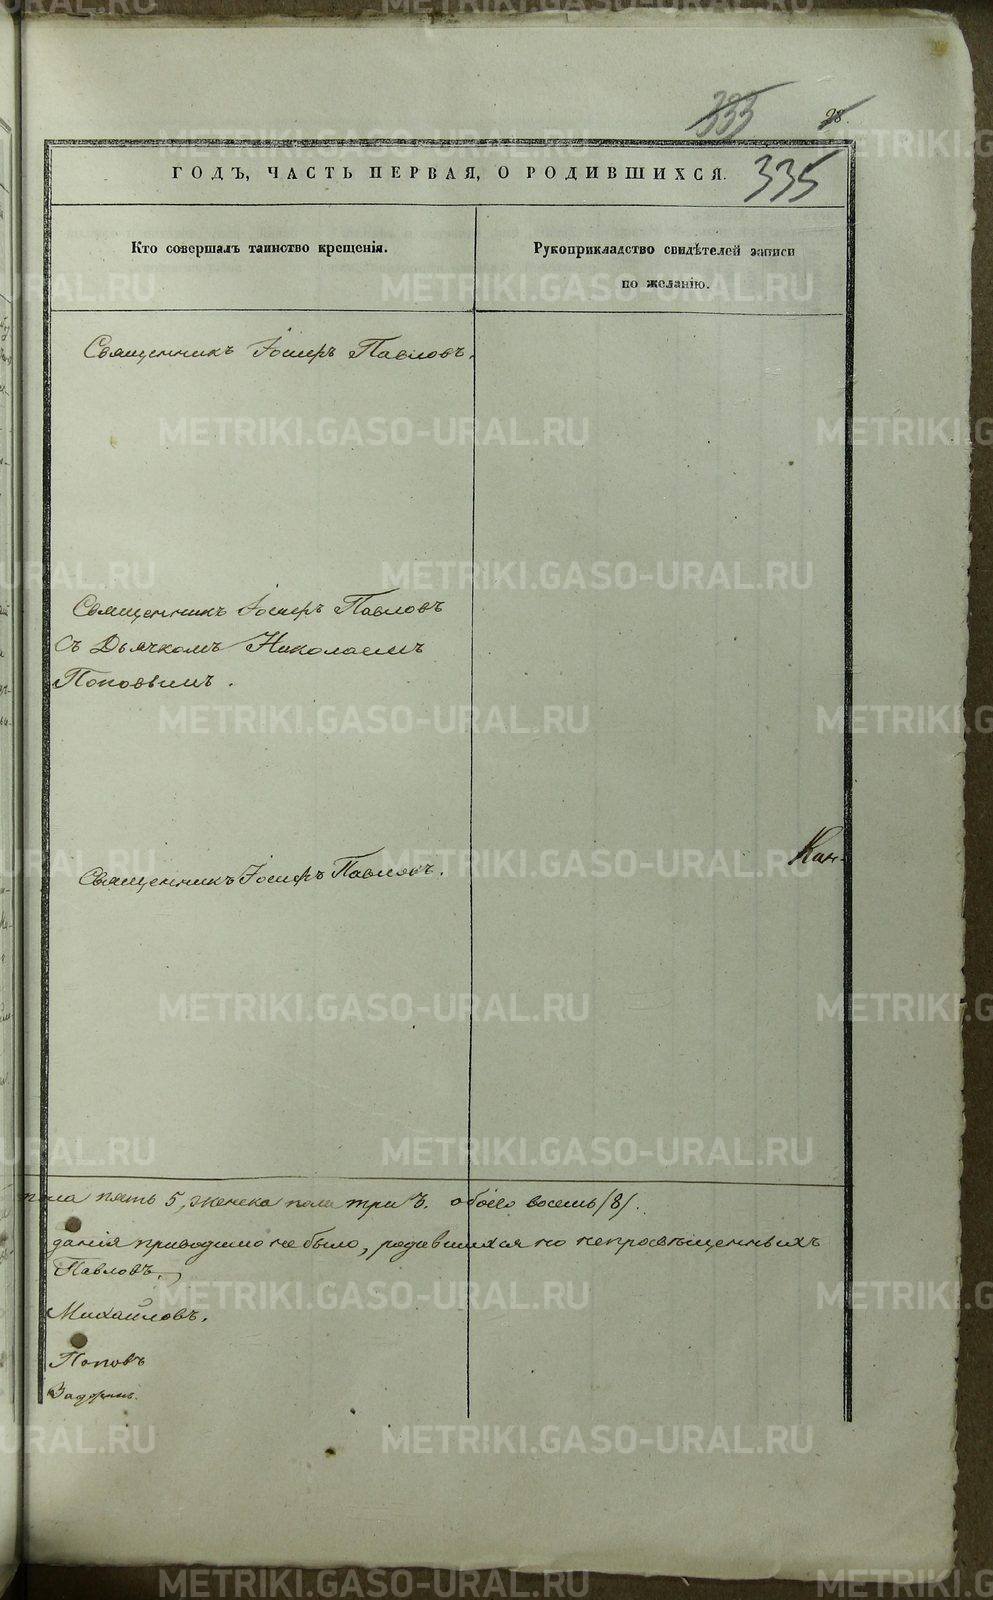 333
28.
335
ГОДЪ, ЧАСТЬ ПЕРВАЯ, О РОДИВШИХСЯ.
Кто совершалъ таинство крещенія.
Рукоприкладство свидѣтелей записи
по желанію.
Священникъ Іосифъ Павловъ.
Священникъ Іосифъ Павловъ
Съ Дьячкомъ Николаемъ
Поповымъ.
Кан-
Священникъ Іосифъ Павловъ.
пола пять 5, женска пола три 3. обоего восемь (8).
данія приводимо не было, родившихся но непросвѣщенныхъ
Павловъ.
Михайловъ.
Поповъ
METRIKI.GASO-URAL.RU